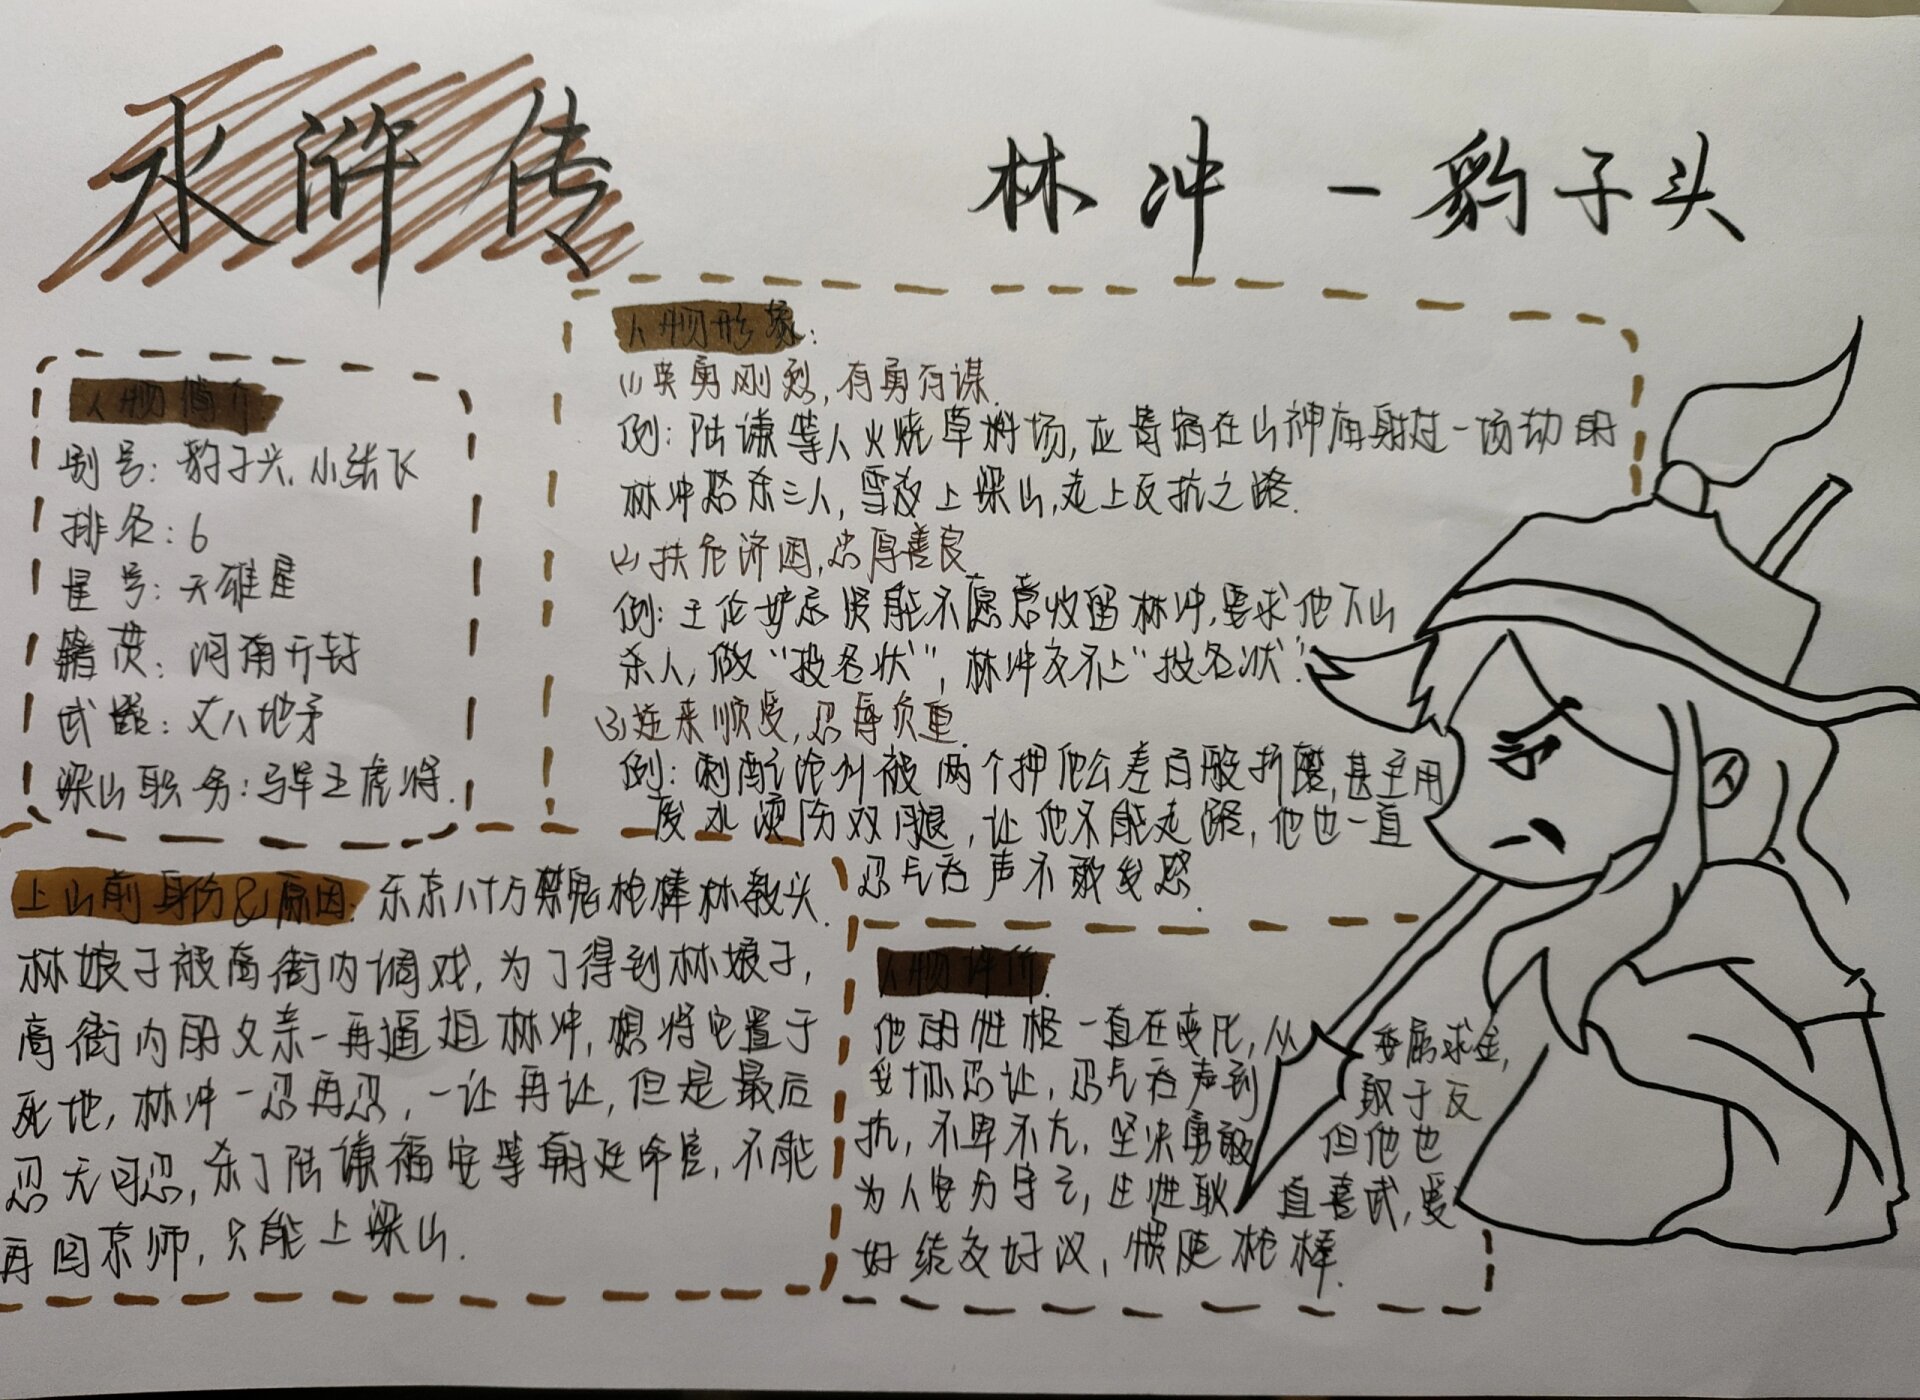 水浒传
林冲 - 豹子头
人物简介
别号：豹子头，小张飞
排名：6
星号：天雄星
籍贯：河南开封
武器：丈八地矛
梁山职务：马军五虎将.
人物形象：
(1)英勇刚烈，有勇有谋.
例：陆谦等人火烧草料场，应寄宿在山神庙躲过一场劫的
林冲怒杀三人，雪夜上梁山，走上反抗之路.
扶危济困，忠厚善良
例：王伦妒忌贤能不愿意收留林冲，要求他下山
杀人，做“投名状”，林冲交不上“投名状”.
(3)逆来顺受，忍辱负重.
例：刺配沧州被两个押他公差百般折磨，甚至用
废水烫伤双腿，让他不能走路，他也一直
忍气吞声不敢发怒.
上山前身份&原因：东京八十万禁军枪棒林教头.
林娘子被高衙内调戏，为了得到林娘子，
高衙内的父亲一再逼迫林冲，想将它置于
死地，林冲一忍再忍，一让再让，但是最后
忍无可忍，杀了陆谦福安等朝廷命官，不能
再回京师，只能上梁山.
人物评价.
他的性格一直在变化，从 委屈求全，
忍让，忍气吞声到 敢于反
抗，不卑不亢，坚决勇敢 但他也
为人安分守己，生性耿 直喜武，爱
好结交好汉，惯使枪棒.